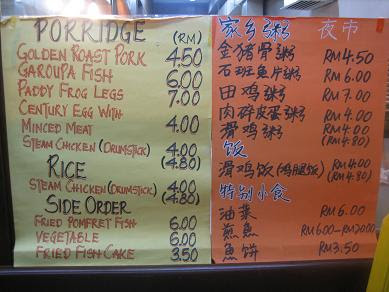 PORRIDGE (RM)
GOLDEN ROAST PORK 4.50
GAROUPA FISH 6.00
PADDY FROG LEGS 7.00
CENTURY EGG WITH
MINCED MEAT 4.00
STEAM CHICKEN (DRUMSTICK) 4.00
(4.80)
RICE
STEAM CHICKEN (DRUMSTICK) 4.00
(4.80)
SIDE ORDER
FRIED POMFRET FISH 6.00
VEGETABLE 6.00
FRIED FISH CAKE 3.50
家乡粥 夜市
金猪骨粥 RM4.50
石班魚片粥 RM6.00
田鸡粥 RM7.00
肉碎皮蛋粥 RM4.00
滑鸡粥 RM4.00
(RM4.80)
饭
滑鸡饭(鸡腿饭) RM4.00
(RM4.80)
特别小食
油菜 RM6.00
煎魚 RM6.00-RM20.00
魚饼 RM3.50